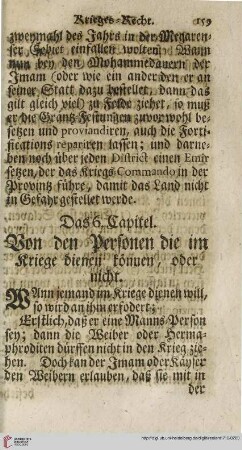 Krieges-Recht. 159
zweymahl des Jahrs in der Megarenser
Gebiet einfallen wolten. Wann
nun bey den Mohammedanern der
Imam oder wie ein ander den er an
seiner Statt dazu bestellet, dann das
gilt gleich viel zu Felde ziehet, so muß
er die Gräntz-Festungen zuvor wohl besetzen
und proviandiren, auch die Fortifications
repariren lassen; und darneben
noch über jeden District einen Emir
setzen, der das Kriegs Commando in der
Provintz führe, damit das Land nicht
in Gefahr gestellet werde.
Das 6. Capitel.
Von den Personen die im
Kriege dienen können, oder
nicht.
WAnn jemand im Kriege dienen will,
so wird an ihm erfodert;
Erstlich, daß er eine Manns-Person
sey; dann die Weiber oder Hermaphroditen
dürffen nicht in den Krieg ziehen.
Doch kan der Imam oder Käyser
den Weibern erlauben, daß sie mit in
der